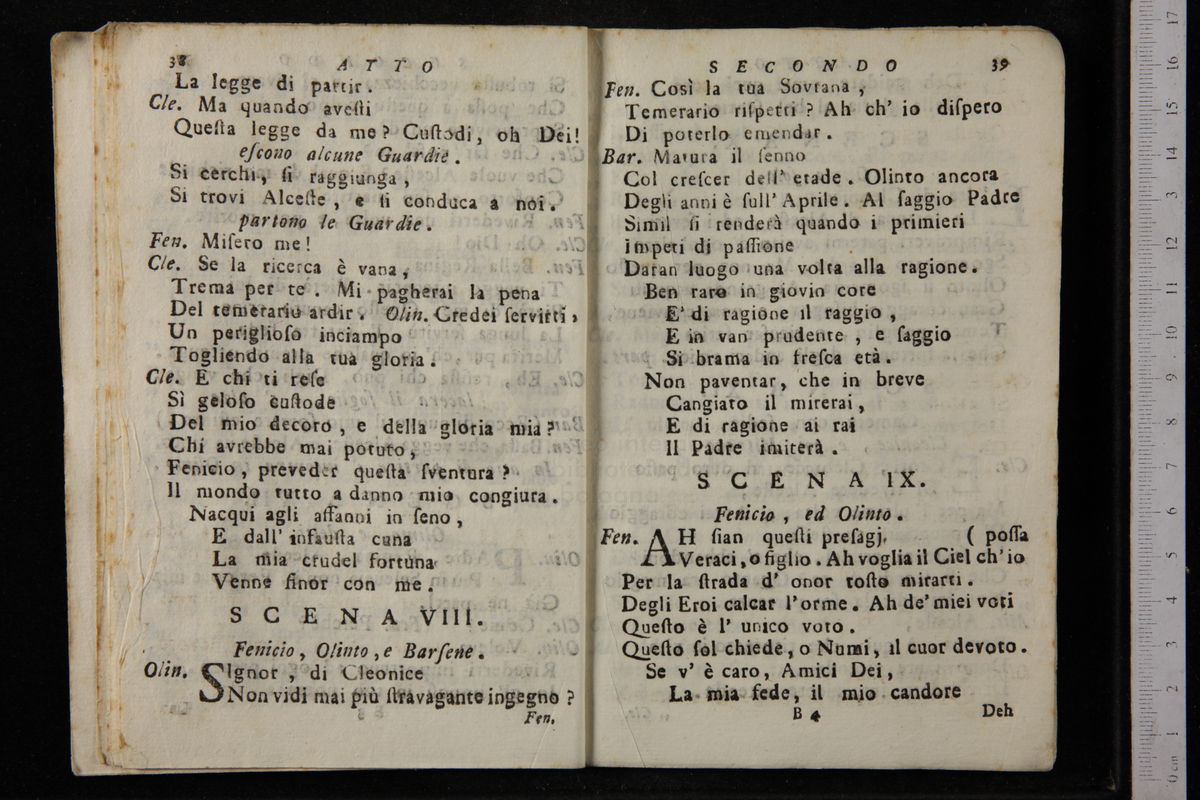 38 ATTO
La legge di partir.
Cle. Ma quando avesti
Questa legge da me? Custodi, oh Dei!
escono alcune Guardie.
Si cerchi, si raggiunga,
Si trovi Alceste, e si conduca a noi.
partono le Guardie.
Fen. Misero me!
Cle. Se la ricerca è vana,
Trema per te. Mi pagherai la pena
Del temerario ardir. Olin. Credei servirti,
Un periglioso inciampo
Togliendo alla tua gloria.
Cle. E chi ti rese
Sì geloso custode
Del mio decoro, e della gloria mia?
Chi avrebbe mai potuto,
Fenicio, preveder questa sventura?
Il mondo tutto a danno mio congiura.
Nacqui agli affanni in seno,
E dall' infausta cuna
La mia crudel fortuna
Venne finor con me.
SCENA VIII.
Fenicio, Olinto, e Barsene.
Olin. SIgnor, di Cleonice
Non vidi mai più stravagante ingegno?
Fen.
SECONDO 39
Fen. Così la tua Sovrana,
Temerario rispetti? Ah ch' io dispero
Di poterlo emendar.
Bar. Matura il senno
Col crescer dell' etade. Olinto ancora
Degli anni è sull' Aprile. Al saggio Padre
Simil si renderà quando i primieri
Impeti di passione
Daran luogo una volta alla ragione.
Ben raro in giovin core
E' di ragione il raggio,
E in van prudente, e saggio
Si brama in fresca età.
Non paventar, che in breve
Cangiato il mirerai,
E di ragione ai rai
Il Padre imiterà.
SCENA IX.
Fenicio, ed Olinto.
Fen. AH sian questi presagj, ( possa
Veraci, o figlio. Ah voglia il Ciel ch' io
Per la strada d' onor tosto mirarti.
Degli Eroi calcar l' orme. Ah de' miei voti
Questo è l' unico voto.
Questo sol chiede, o Numi, il cuor devoto.
Se v' è caro, Amici Dei,
La mia fede, il mio candore
B 4 Deh